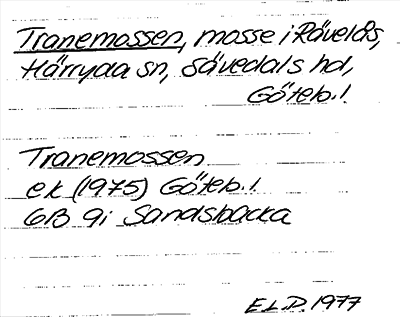 Tranemossen, mosse i Rävelås,
Härryda sn, Sävedals hd,
Göteb. l.
Tranemossen
ek (1975) Göteb. l.
6B 9i Sandsbacka
E.L.D. 1977